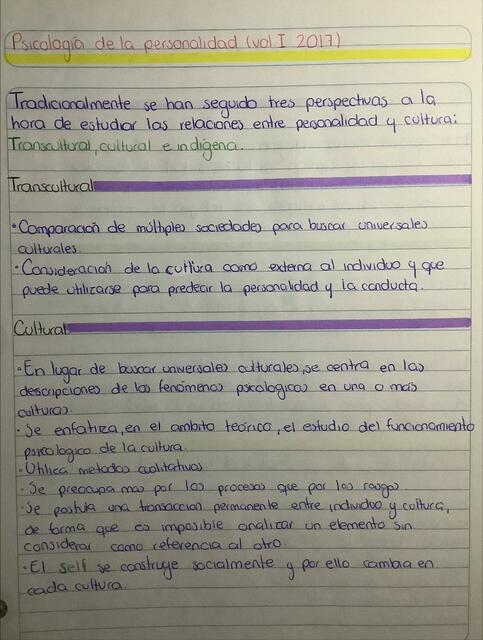 Psicología de la personalidad (vol I 2017)
Tradicionalmente se han seguido tres perspectivas a la
hora de estudiar las relaciones entre personalidad y cultura:
Transcultural, cultural e indígena.
Transcultural
• Comparación de múltiples sociedades para buscar universales
culturales.
• Consideración de la cultura como externa al individuo y que
puede utilizarse para predecir la personalidad y la conducta.
Cultural
• En lugar de buscar universales culturales, se centra en las
descripciones de los fenómenos psicologicos en una o más
culturas.
• Se enfatiza, en el ambito teórico, el estudio del funcionamiento
psicologico de la cultura.
• Utiliza metodos cualitativos
• Se preocupa mas por los procesos que por los rasgos
• Se postula una transaccion permanente entre individuo y cultura,
de forma que es imposible analizar un elemento sin
considerar como referencia al otro.
• El self se construye socialmente y por ello cambia en
cada cultura.